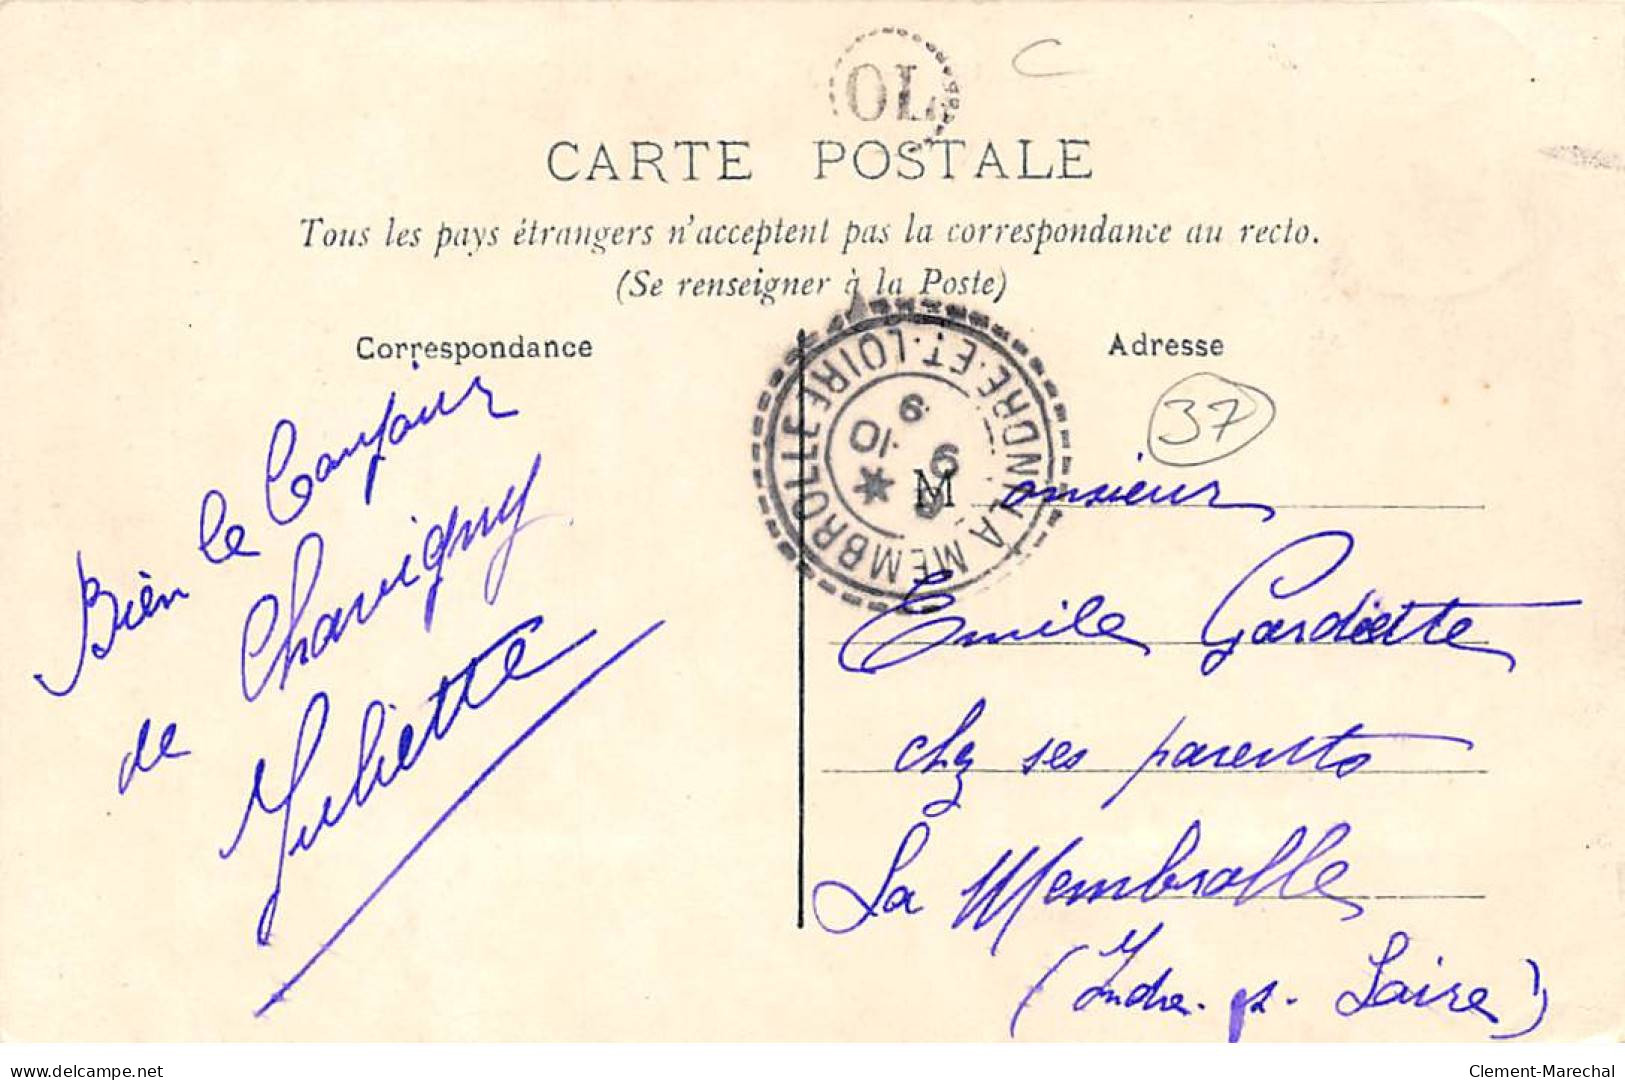 OL
C
CARTE POSTALE
Tous les pays étrangers n'acceptent pas la correspondance au recto.
(Se renseigner à la Poste)
Correspondance
Adresse
37
LA MEMBROLLE
INDRE-ET-LOIRE
Bien le Bonjour
de Chavigny
Juliette
Monsieur
Emile Gardiette
chez ses parents
La Membrolle
(Indre
Loire)
delcampe.net
Clement-Marechal